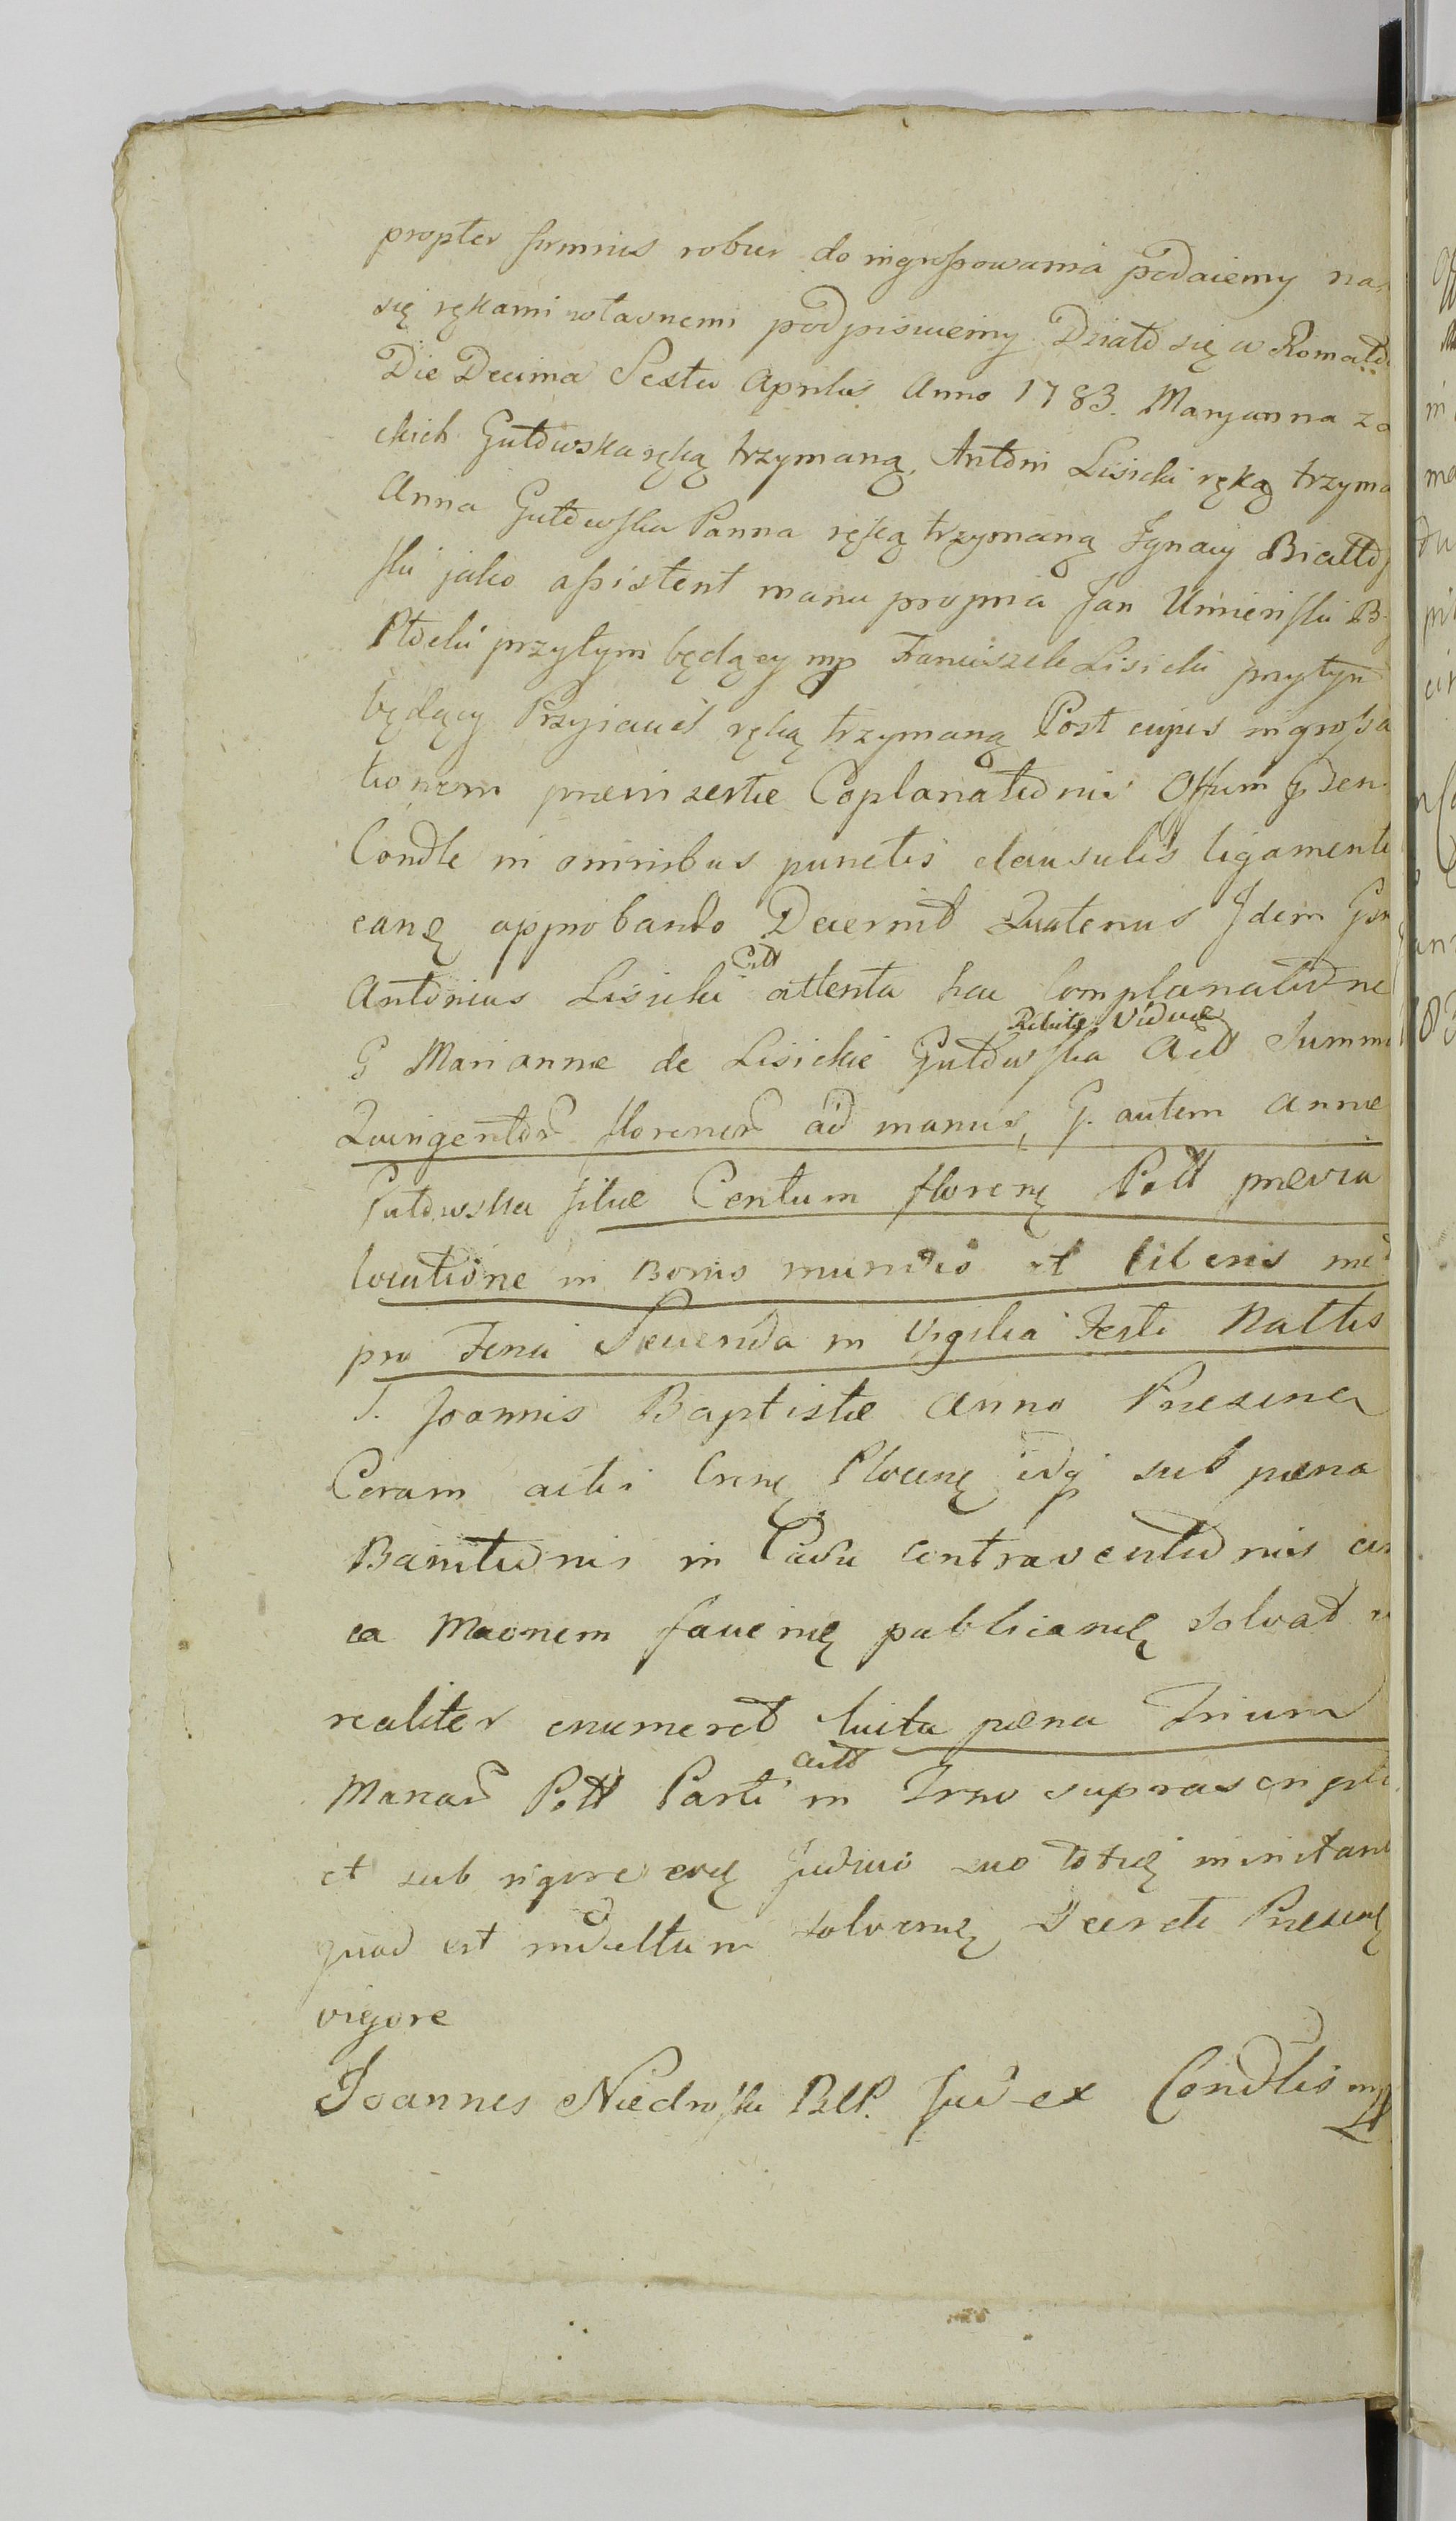 propter firmius robur do ingrossowania podaiemy na
się rękami własnemi podpisuiemy Działo się w Romato
Die Decima Sexta Aprilis Anno 1783. Maryanna z
ckich Gutowska ręką trzymaną, Antoni Lisicki ręką trzyma
Anna Gutowska Panna ręką trzymaną Ignacy Biallo
ski jako assistent manu propria Jan Umienski B
Płocki przytym będący mp Franciszek Lisicki przytym
będący Przyiaciel ręką trzymaną Post cujus ingrossa
tionem præinsertæ Coplanationis Offum
Condle in omnibus punctis clausulis ligamenti
eanę approbando Decernit Quatenus Idem
Antonius Lisicki Citt attenta hac Complanatione
G Mariannæ de Lisickie Gutowska Relictæ Viduæ Actt Summ
Quingentor florenor ad manus, G. autem Annæ
Gutowska filiæ Centum florenę Poll prævia
locatione in Bonis mundis et liberis
pro Feria Secunda in Vigilia Festi Nattis
S. Joannis Baptistæ Anno Præsenę
Coram actis Plocenę idq sub pœna
Banitionis in Casu contraventionis
ea publicandę solvat
realiter enumeret luita pœna Trium
Marcar Poll Parti Actt in Trno suprascripti
et sub rigore Judicio suo
quod est indultum solvenę Decreti Præsenę
vigore
Joannes Niedroski B.C.P. Jud ex Condlis mp